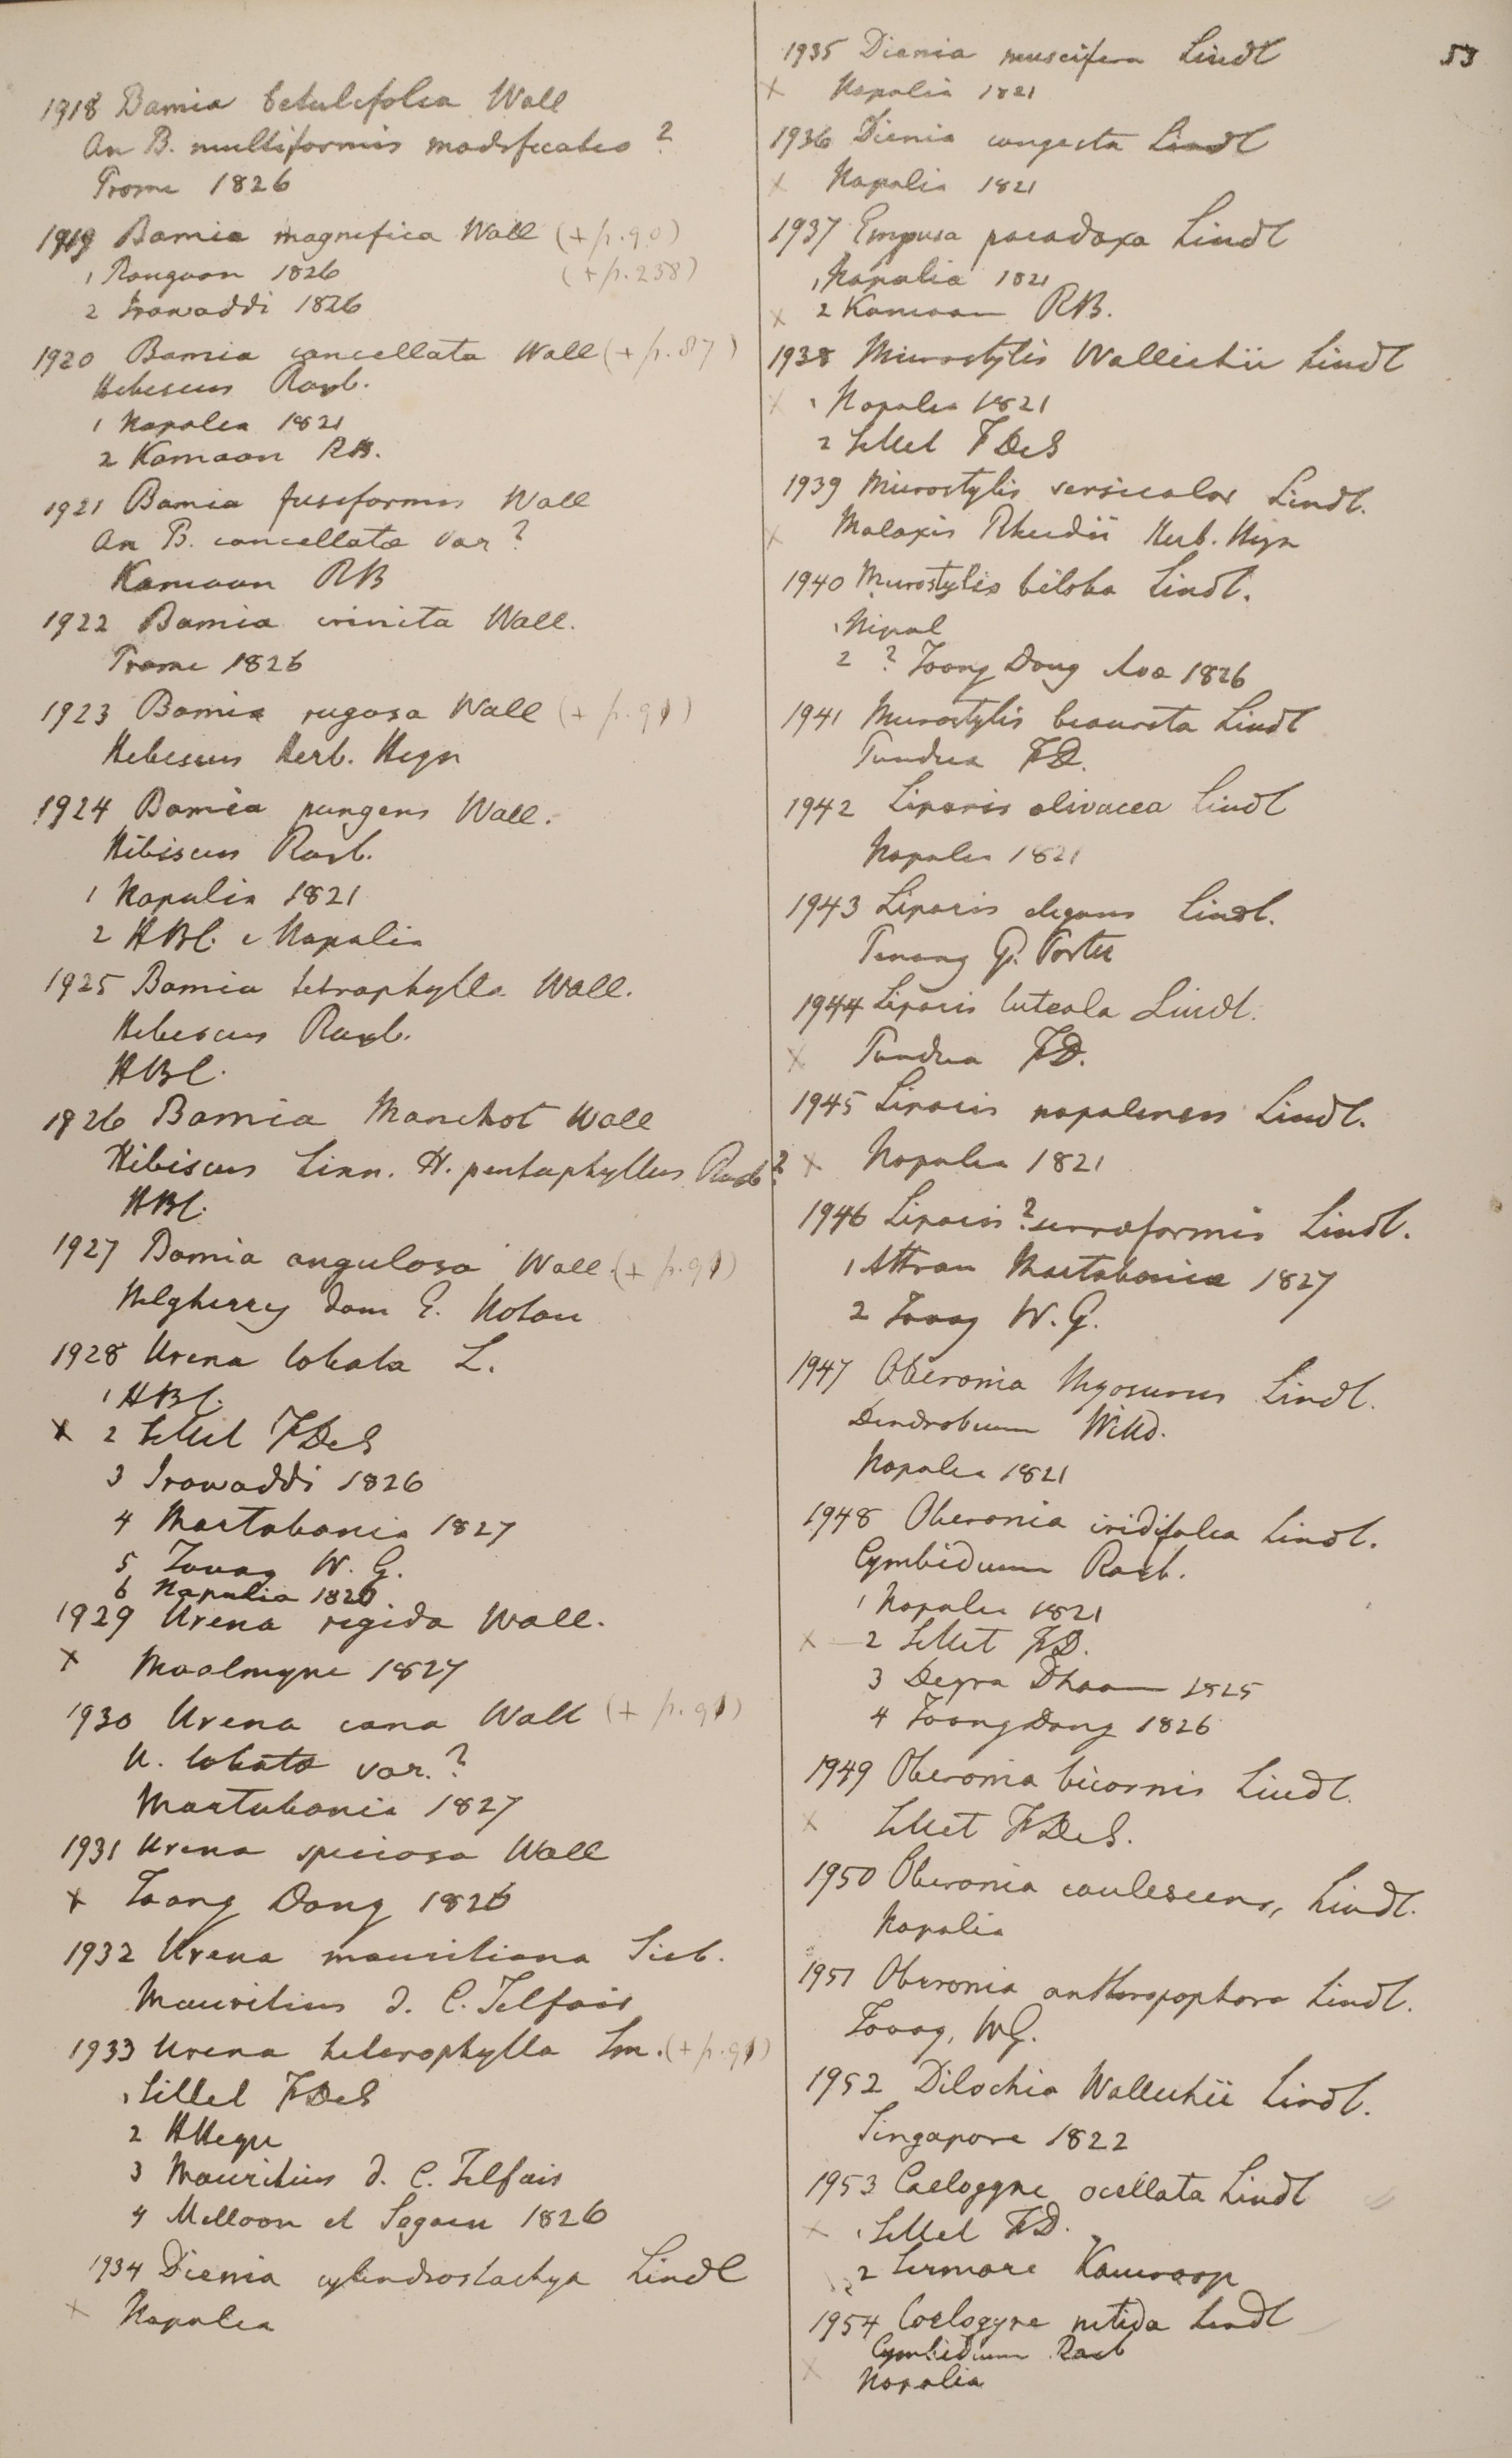 53
1918 Bamia betulifolia Wall
An B. multiformis modificatio ?
Prome 1826
1919 Bamia magnifica Wall (+ p. 90)
1 Rangoon 1826 (+ p. 238)
2 Irawaddi 1826
1920 Bamia cancellata Wall (+ p. 87)
Hibiscus Roxb.
1 Napalia 1821
2 Kamaon RB.
1921 Bamia fusiformis Wall
An B. cancellata var ?
Kamaon RB
1922 Bamia crinita Wall.
Prome 1826
1923 Bamia rugosa Wall (+ p. 91)
Hibiscus Herb. Heyn
1924 Bamia pungens Wall.
Hibiscus Roxb.
1 Napalia 1821
2 HBC. e Napalia
1925 Bamia tetraphylla Wall.
Hibiscus Roxb.
HBC.
1926 Bamia Manehot Wall
Hibiscus Linn. H. pentaphyllus Roxb ?
HBC.
1927 Bamia angulosa Wall. (+ p. 91)
Nilgherry dom E. Noton
1928 Urena lobata L.
1 HBC.
x 2 Sillet FDeS
3 Irawaddi 1826
4 Martabania 1827
5 Tavoy W. G.
6 Napalia 1820
1929 Urena rigida Wall.
x Moalmyne 1827
1930 Urena cana Wall (+ p. 91)
U. lobata var. ?
Martabania 1827
1931 Urena speciosa Wall
x Toong Dong 1826
1932 Urena mauritiana Sieb.
Mauritius d. C. Telfair
1933 Urena heterophylla Sm. (+ p. 91)
1 Sillet FDeS
2 HHeyn
3 Mauritius d. C. Telfair
4 Melloon et Segaen 1826
1934 Dienia cylindrostachya Lindl
x Napalia
1935 Dienia muscifera Lindl
x Napalia 1821
1936 Dienia congesta Lindl
x Napalia 1821
1937 Empusa paradoxa Lindl
1 Napalia 1821
x 2 Kamaon RB.
1938 Microstylis Wallichii Lindl
x 1 Napalia 1821
2 Sillet FDeS
1939 Microstylis versicolor Lindl.
x Malaxis Rheedii Herb. Heyn
1940 Microstylis biloba Lindl.
1 Nipal
2 ? Toong Dong Ava 1826
1941 Microstylis biaurita Lindl
Pundua FD.
1942 Liparis olivacea Lindl
Napalia 1821
1943 Liparis elegans Lindl.
Penang G. Porter
1944 Liparis luteola Lindl.
x Pundua FD.
1945 Liparis napalensis Lindl.
x Napalia 1821
1946 Liparis ? serraformis Lindl.
1 Attran Martabania 1827
2 Tavoy W. G.
1947 Oberonia Myosurus Lindl.
Dendrobium Willd.
Napalia 1821
1948 Oberonia iridifolia Lindl.
Cymbidium Roxb.
1 Napalia 1821
x 2 Sillet FD.
3 Deyra Dhoon 1825
4 Toong Dong 1826
1949 Oberonia bicornis Lindl.
x Sillet FDeS.
1950 Oberonia caulescens, Lindl.
Napalia
1951 Oberonia anthropophora Lindl.
Tavoy, WG.
1952 Dilochia Wallichii Lindl.
Singapore 1822
1953 Caelogyne ocellata Lindl
x 1 Sillet FD.
2 Sirmore Kamroop
1954 Coelogyne nitida Lindl
Cymbidium Roxb
x Napalia